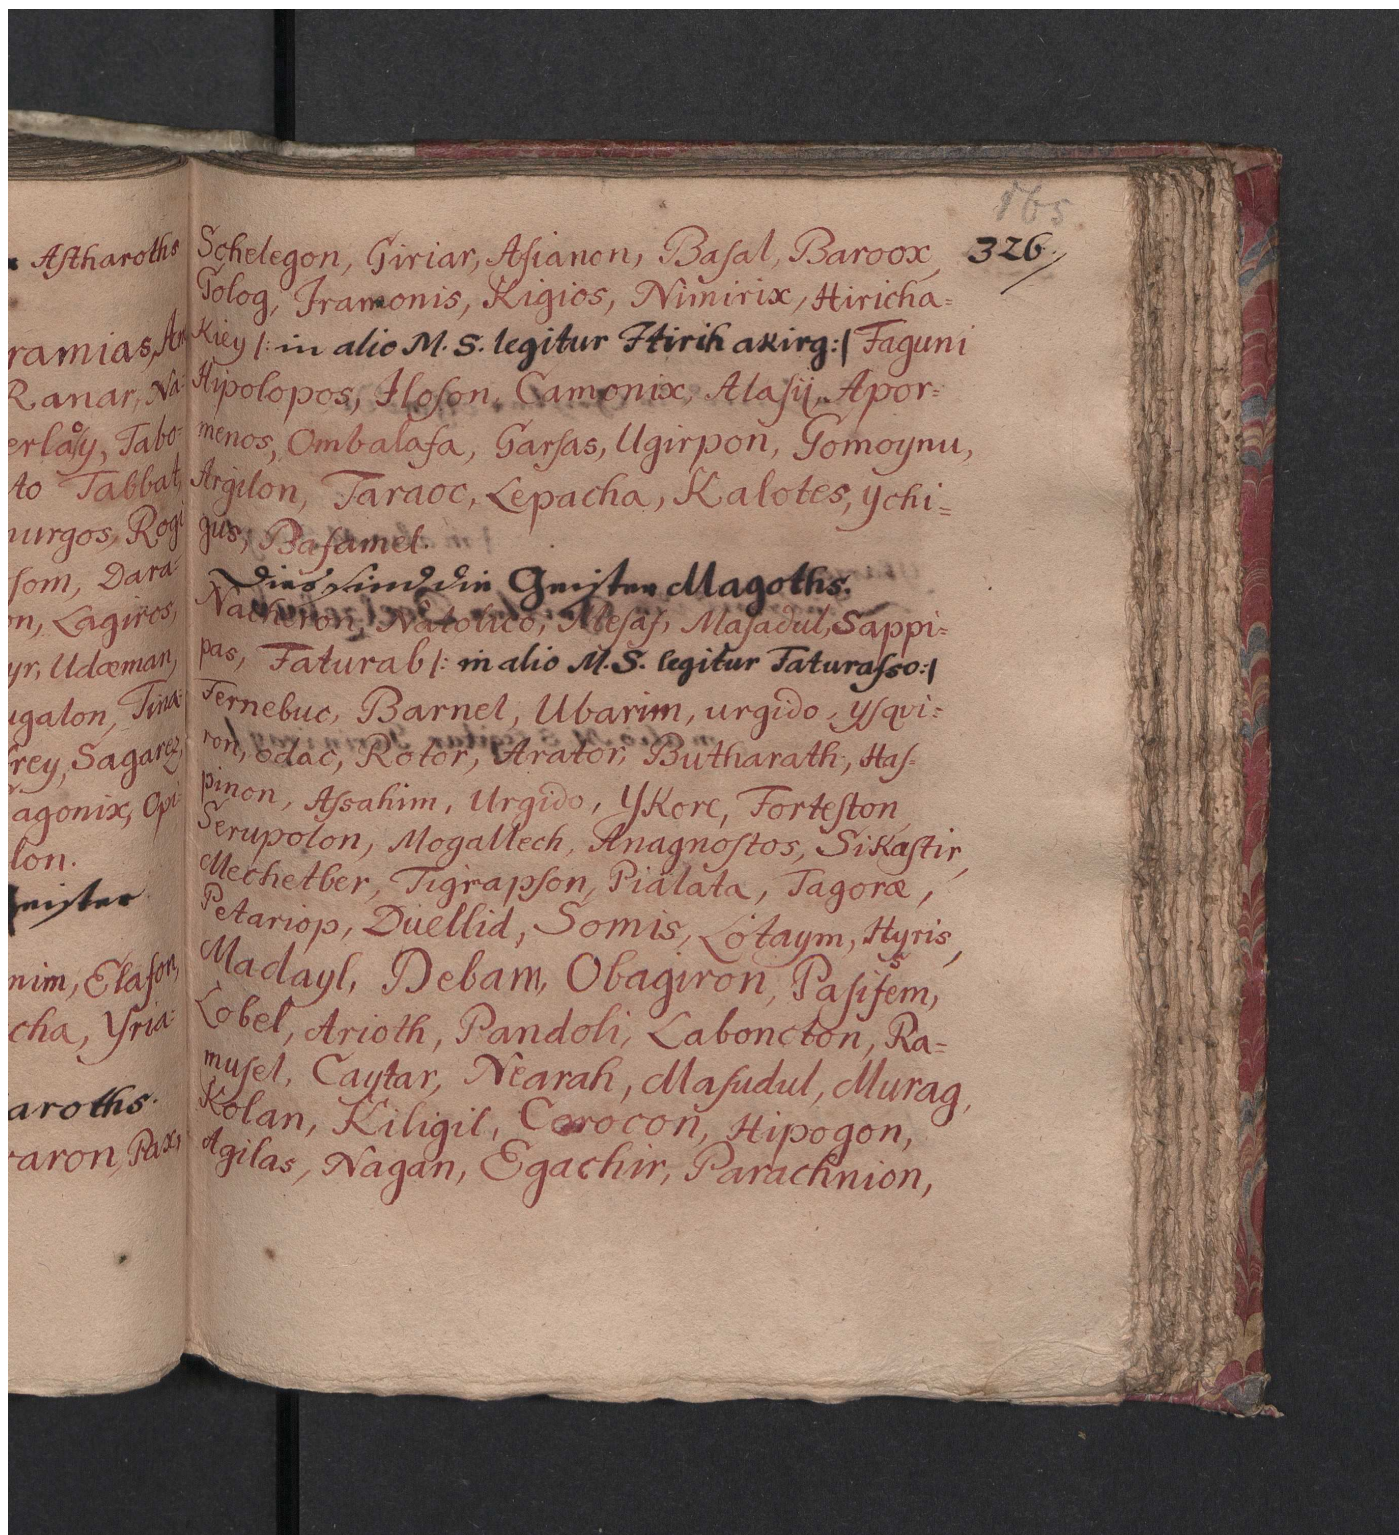 Astharoths
ramias, Ar
Ranar, Na-
erlåsy, Tabo-
to Tabbat,
nurgos, Rogi
som, Dara-
on, Lagiros,
yr, Udæman,
ugalon, Tira-
frey, Sagarez,
agonix, Opi-
lon.
Geister
nim, Elafon,
cha, Yria-
aroths.
raron, Pax,
165
326.
Schelegon, Giriar, Aſianon, Baſal, Baroox,
Golog, Iramonis, Kigios, Nimirix, Hiricha=
Kiey |: in alio M. S. legitur Htirih akirg :| Faguni
Hipolopos, Iloſon, Camonix, Alaſij, Apor=
menos, Ombalaſa, Garſas, Ugirpon, Gomoynu,
Argilon, Taraoc, Lepacha, Kalotes, ychi=
gus, Baſamel.
Dies sind die Geister Magoths.
Nacheron, Natolico, Meſaſ, Maſadul, Sappi=
pas, Faturab |: in alio M. S. legitur Taturaſso :|
Fernebuc, Barnel, Ubarim, urgido, yſqvi=
ron, odac, Rotor, Arator, Butharath, Haſ-
pinon, Aſsahim, Urgido, YKorc, Forteſton
Serupolon, Mogallech, Anagnoſtos, SiKaſtir,
Mechetber, Tigrapſon, Pialata, Tagoræ,
Petariop, Duellid, Somis, Lotaym, Hyris,
Madayl, Debam, Obagiron, Paſiſem,
Lobel, Arioth, Pandoli, Laboncton, Ra=
muſel, Caytar, Nearah, Maſudul, Murag,
Kolan, Kiligil, Corocon, Hipogon,
Agilas, Nagan, Egachir, Parachnion,